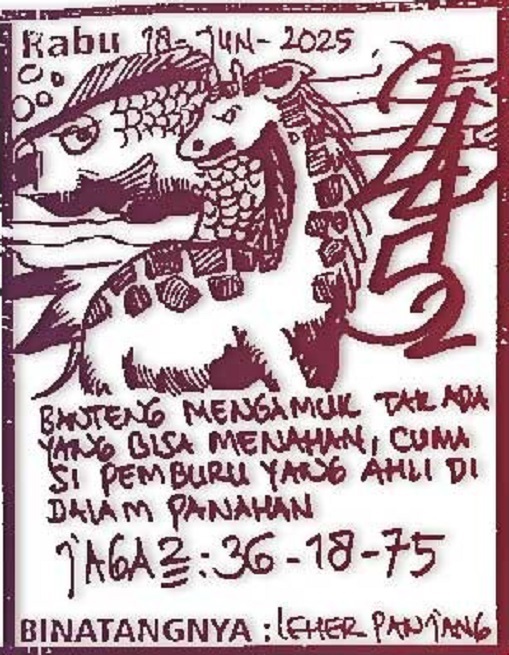 Rabu 18-JUN-2025
2452
BANTENG MENGAMUK TAK ADA
YANG BISA MENAHAN, CUMA
SI PEMBURU YANG AHLI DI
DALAM PANAHAN
JAGA2 : 36-18-75
BINATANGNYA : LEHER PANJANG